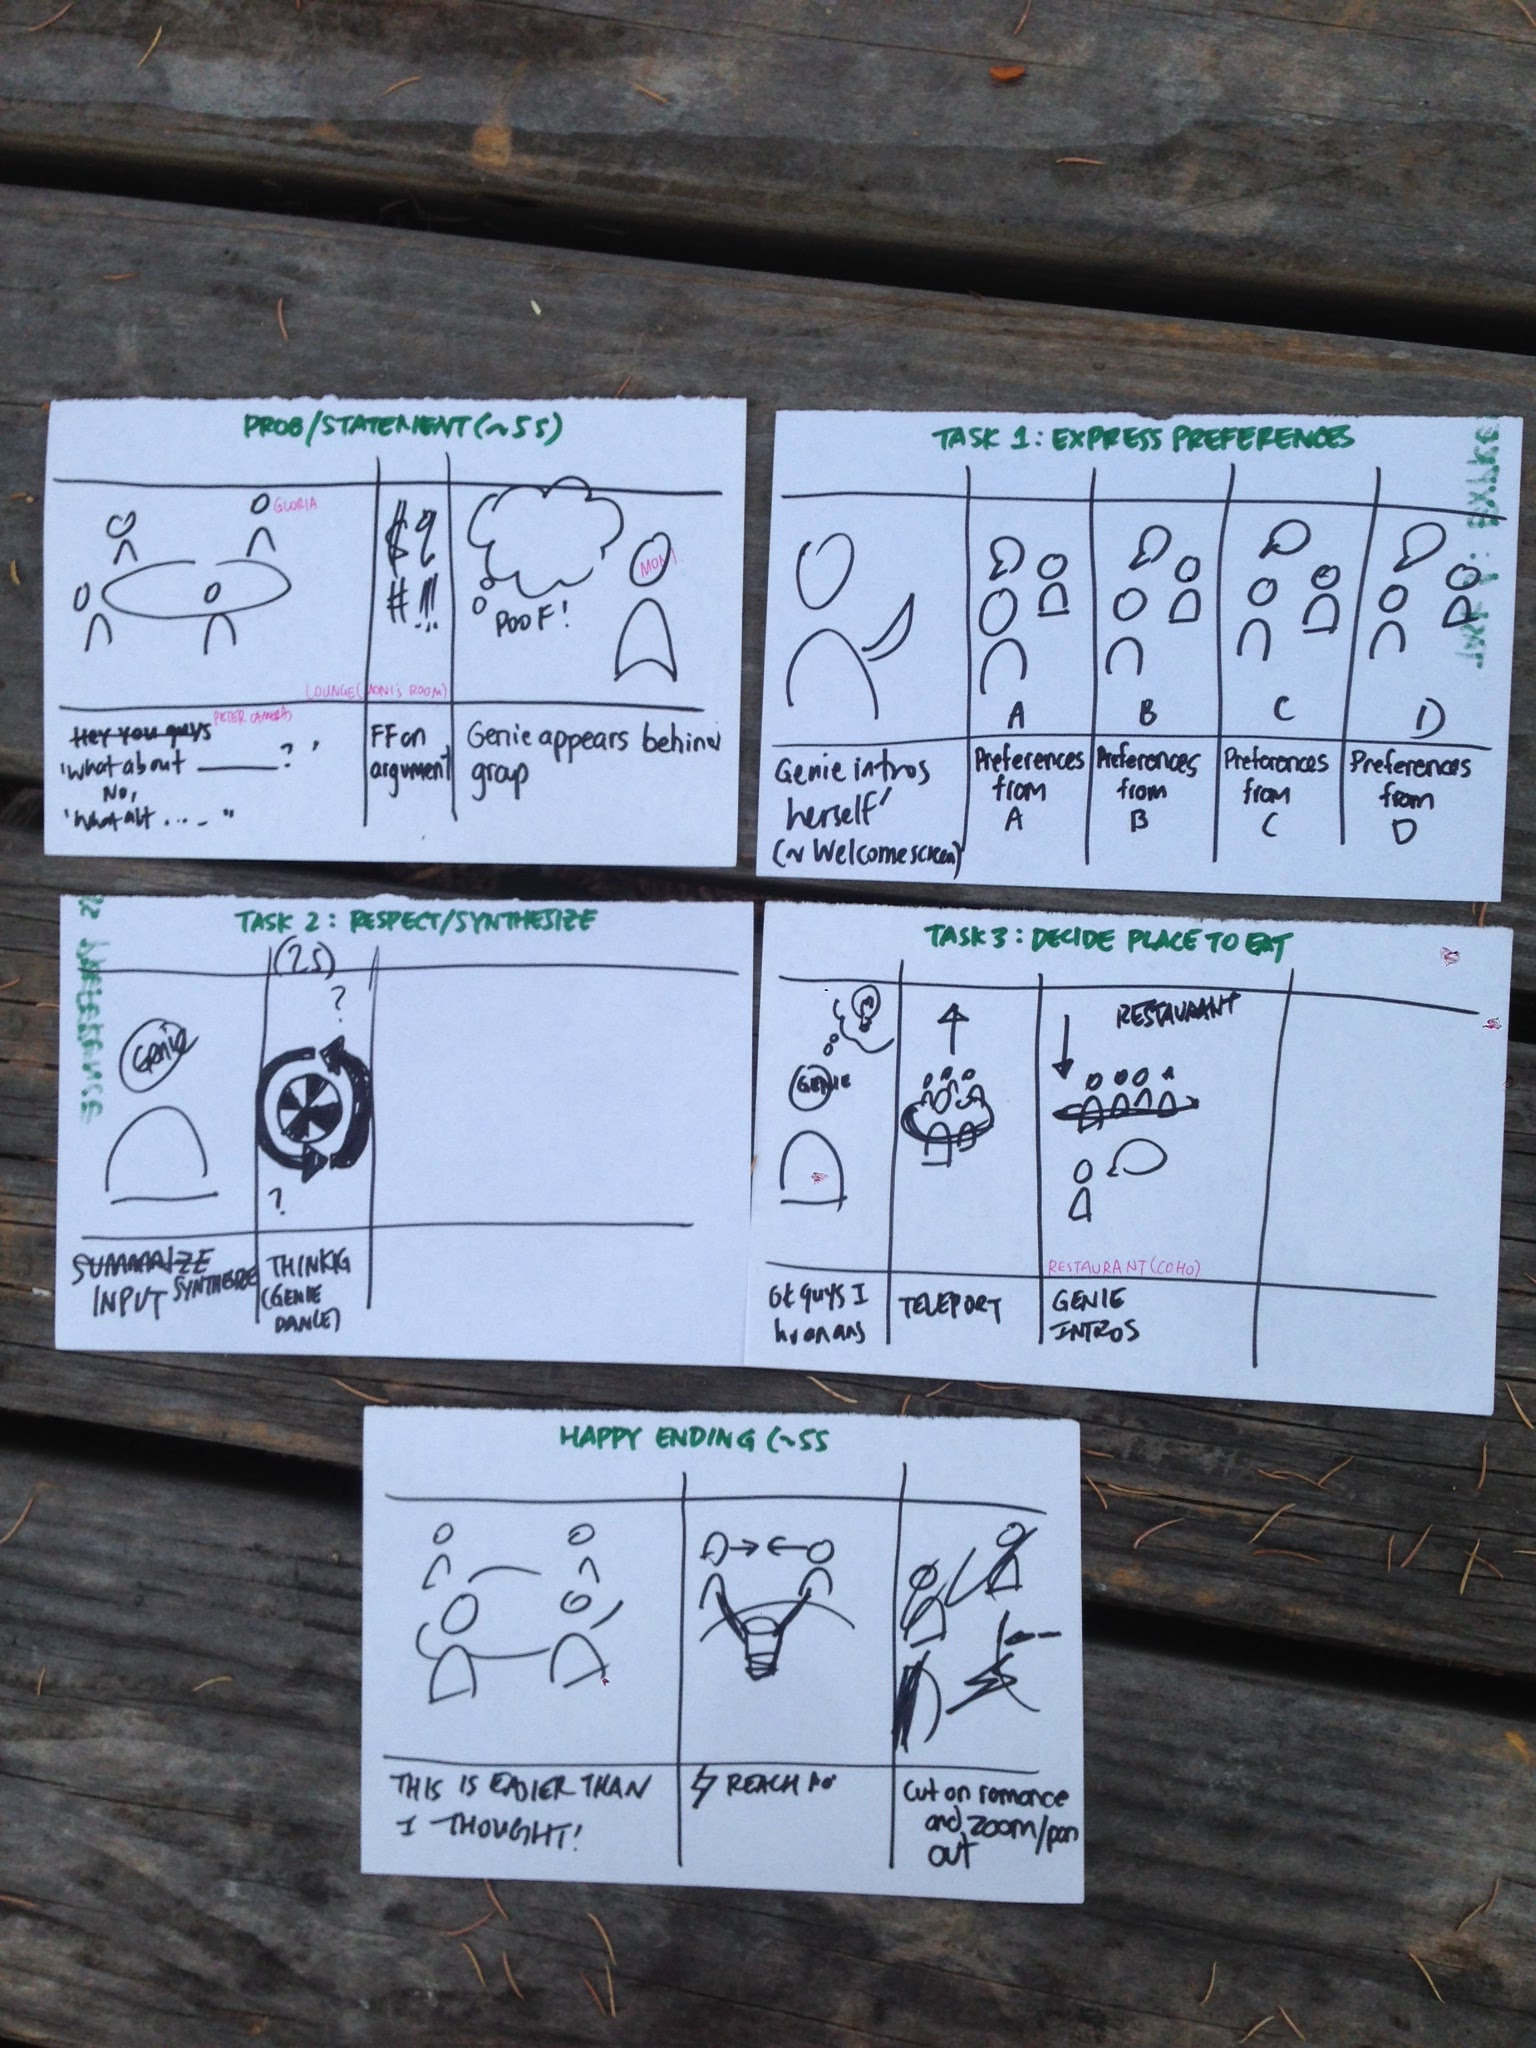 PROB/STATEMENT (~5s)
GLORIA
$?
#!!!
POOF!
MONI
LOUNGE (MONI'S ROOM)
PETER CAMERA
Hey you guys
"What about ______?"
No,
"What abt ....."
FF on
argument
Genie appears behind
group
TASK 1: EXPRESS PREFERENCES
A
B
C
D
Genie intros
herself
(~ Welcome screen)
Preferences
from
A
Preferences
from
B
Preferences
from
C
Preferences
from
D
TASK 2: RESPECT/SYNTHESIZE
(2s)
?
GENIE
?
SUMMARIZE
SYNTHESIZE
INPUT
THINKIG
(GENIE
DANCE)
TASK 3: DECIDE PLACE TO EAT
GENIE
RESTAURANT
RESTAURANT (COHO)
Ok guys I
TELEPORT
GENIE
INTROS
HAPPY ENDING (~5s
THIS IS EASIER THAN
I THOUGHT!
REACH
Cut on romance
and zoom/pan
out